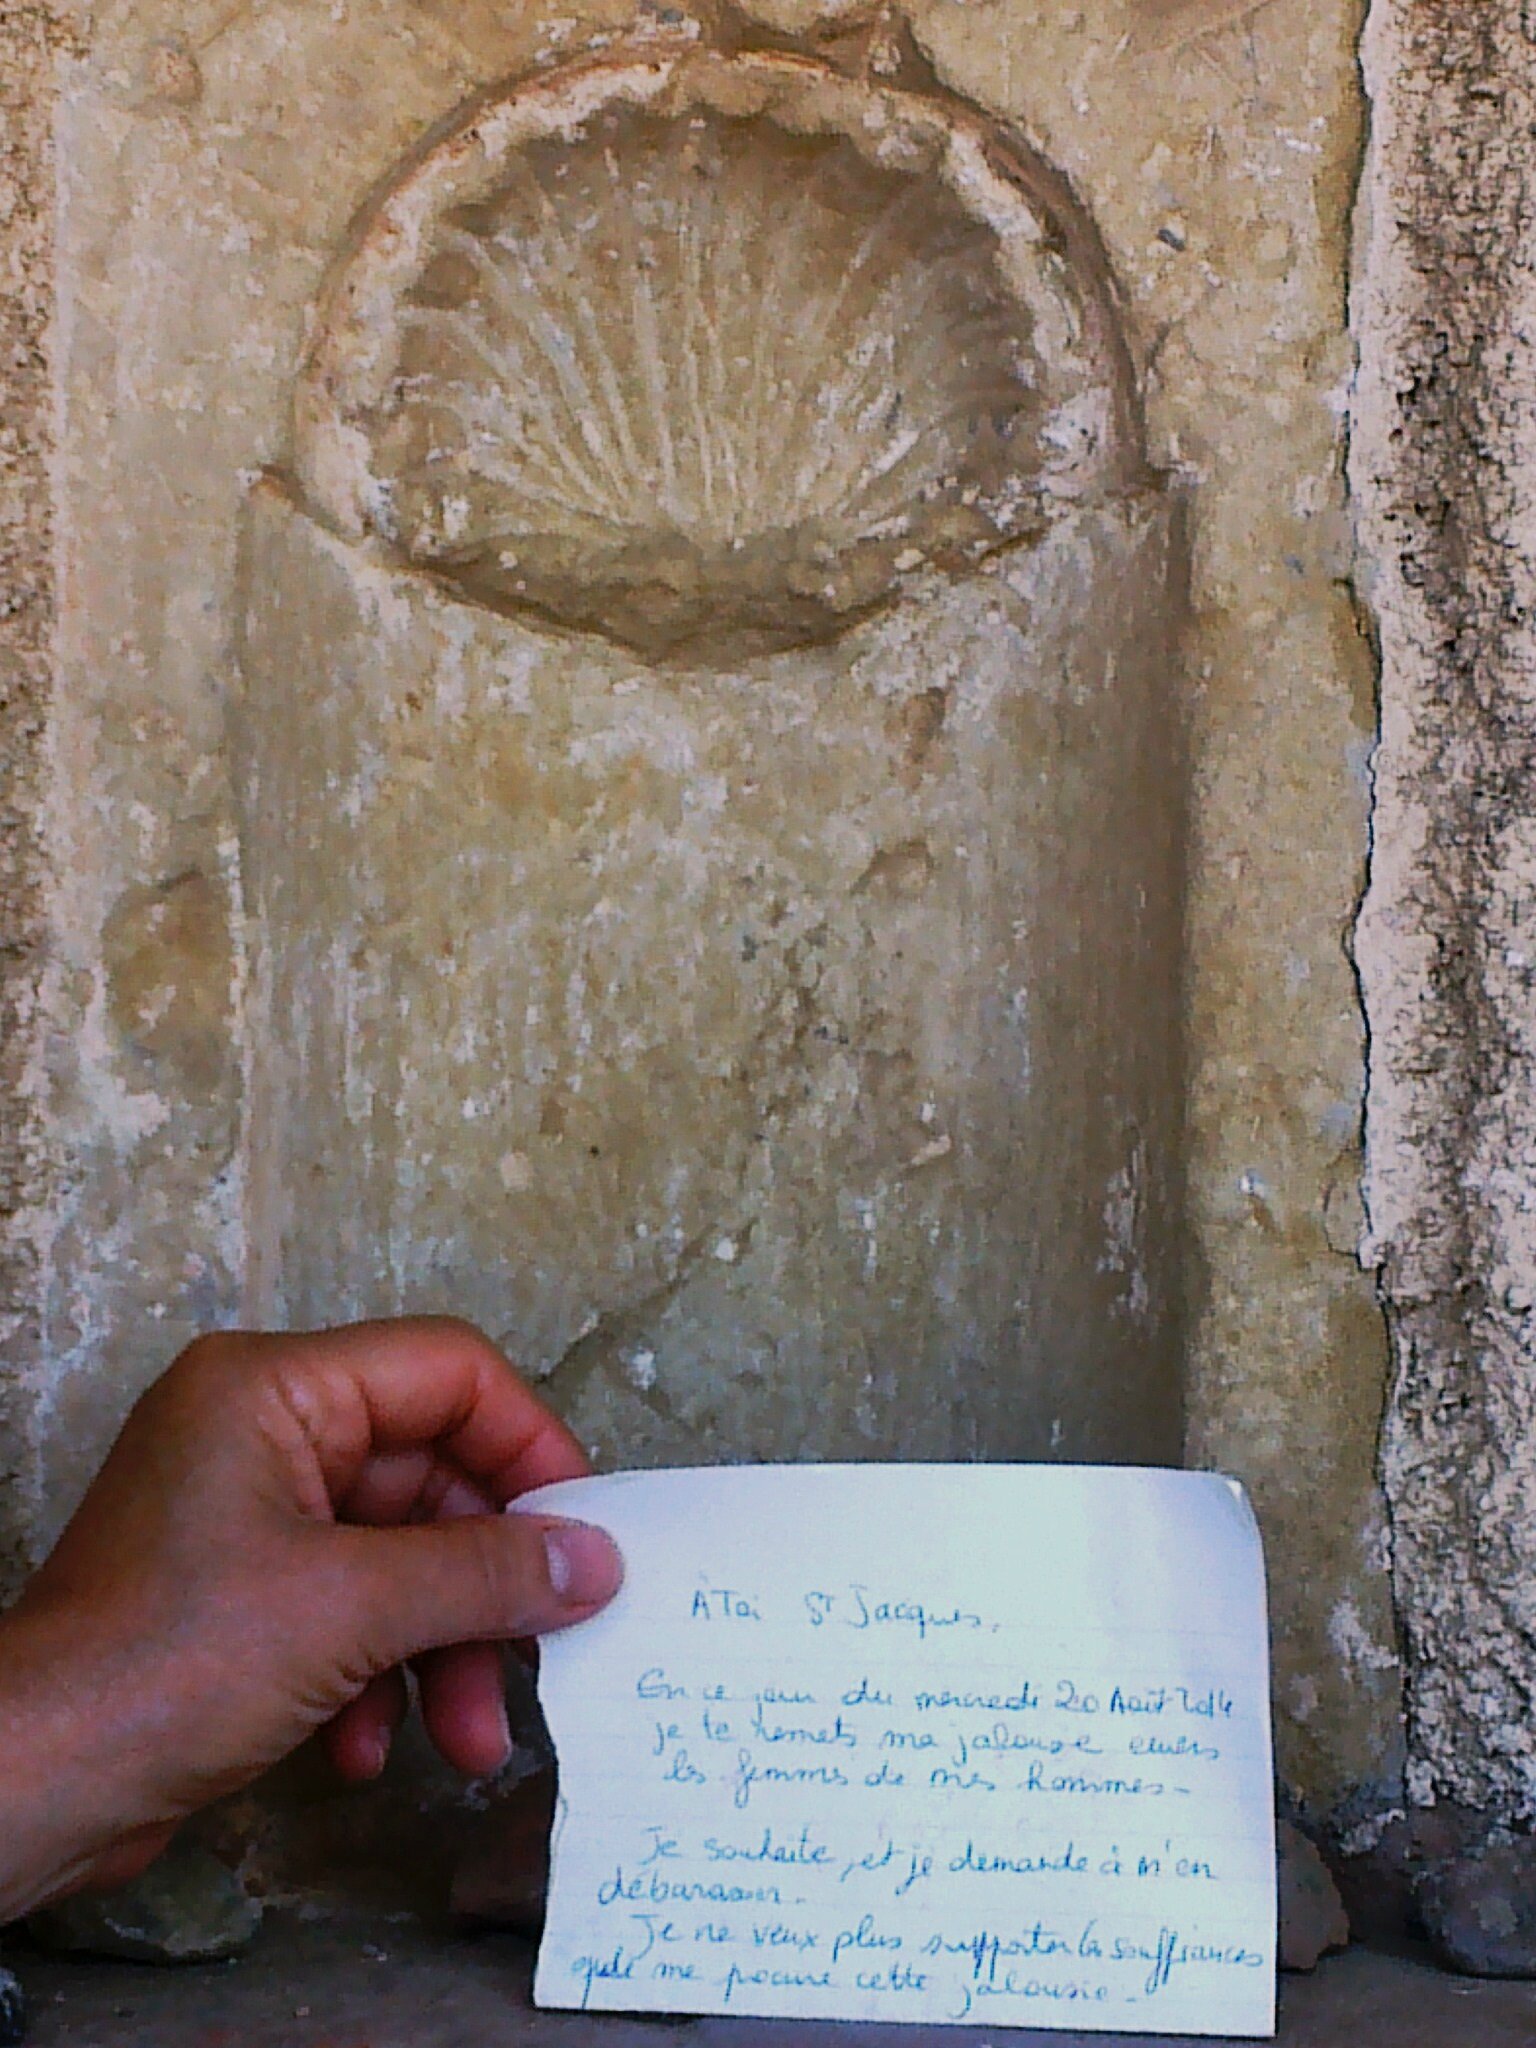 À Toi St Jacques,
En ce jour du mercredi 20 Août 2014
je te remets ma jalousie envers
les femmes de mes hommes -
Je souhaite, et je demande à m'en
débarasser.
Je ne veux plus supporter les souffrances
que me procure cette jalousie -